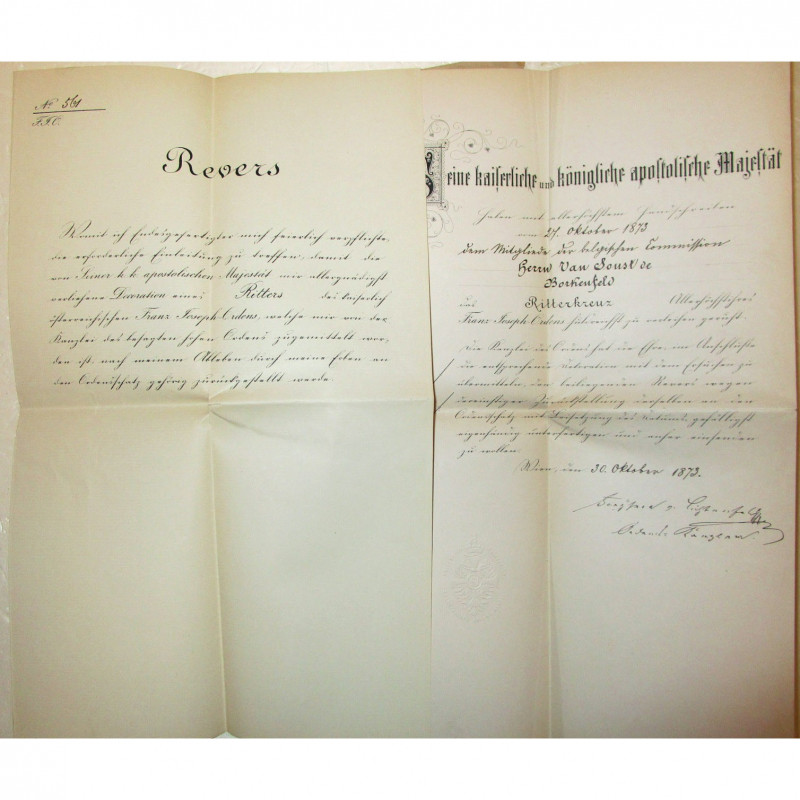 No 561
F.J.O.
Revers
Womit ich Endesgefertigter mich feierlich verpflichte,
die erforderliche Einleitung zu treffen, damit die
von Seiner k. k. apostolischen Majestät mir allergnädigst
verliehene Decoration eines Ritters des kaiserlich
österreichischen Franz Joseph Ordens, welche mir von der
Kanzlei des besagten hohen Ordens zugemittelt wor,,
den ist, nach meinem Ableben durch meine Erben an
den Ordensschatz gehörig zurückgestellt werde.
Seine kaiserliche und königliche apostolische Majestät
haben mit allerhöchstem Handschreiben
vom 27. Oktober 1873
dem Mitgliede der belgischen Commission
Herrn Van Soust de
Borkenfeld
das Ritterkreuz Allerhöchstihres
Franz Joseph Ordens huldreichst zu verleihen geruht.
Die Kanzlei des Ordens hat die Ehre, im Anschlusse
die entsprechende Dekoration mit dem Ersuchen zu
übermitteln, den beiliegenden Revers wegen
dereinstiger Zurückstellung derselben an den
Ordensschatz mit Beisetzung des Datums, gefälligst
eigenhändig unterfertigen und anher einsenden
zu wollen.
Wien, den 30. Oktober 1873.
Ordens Kanzler